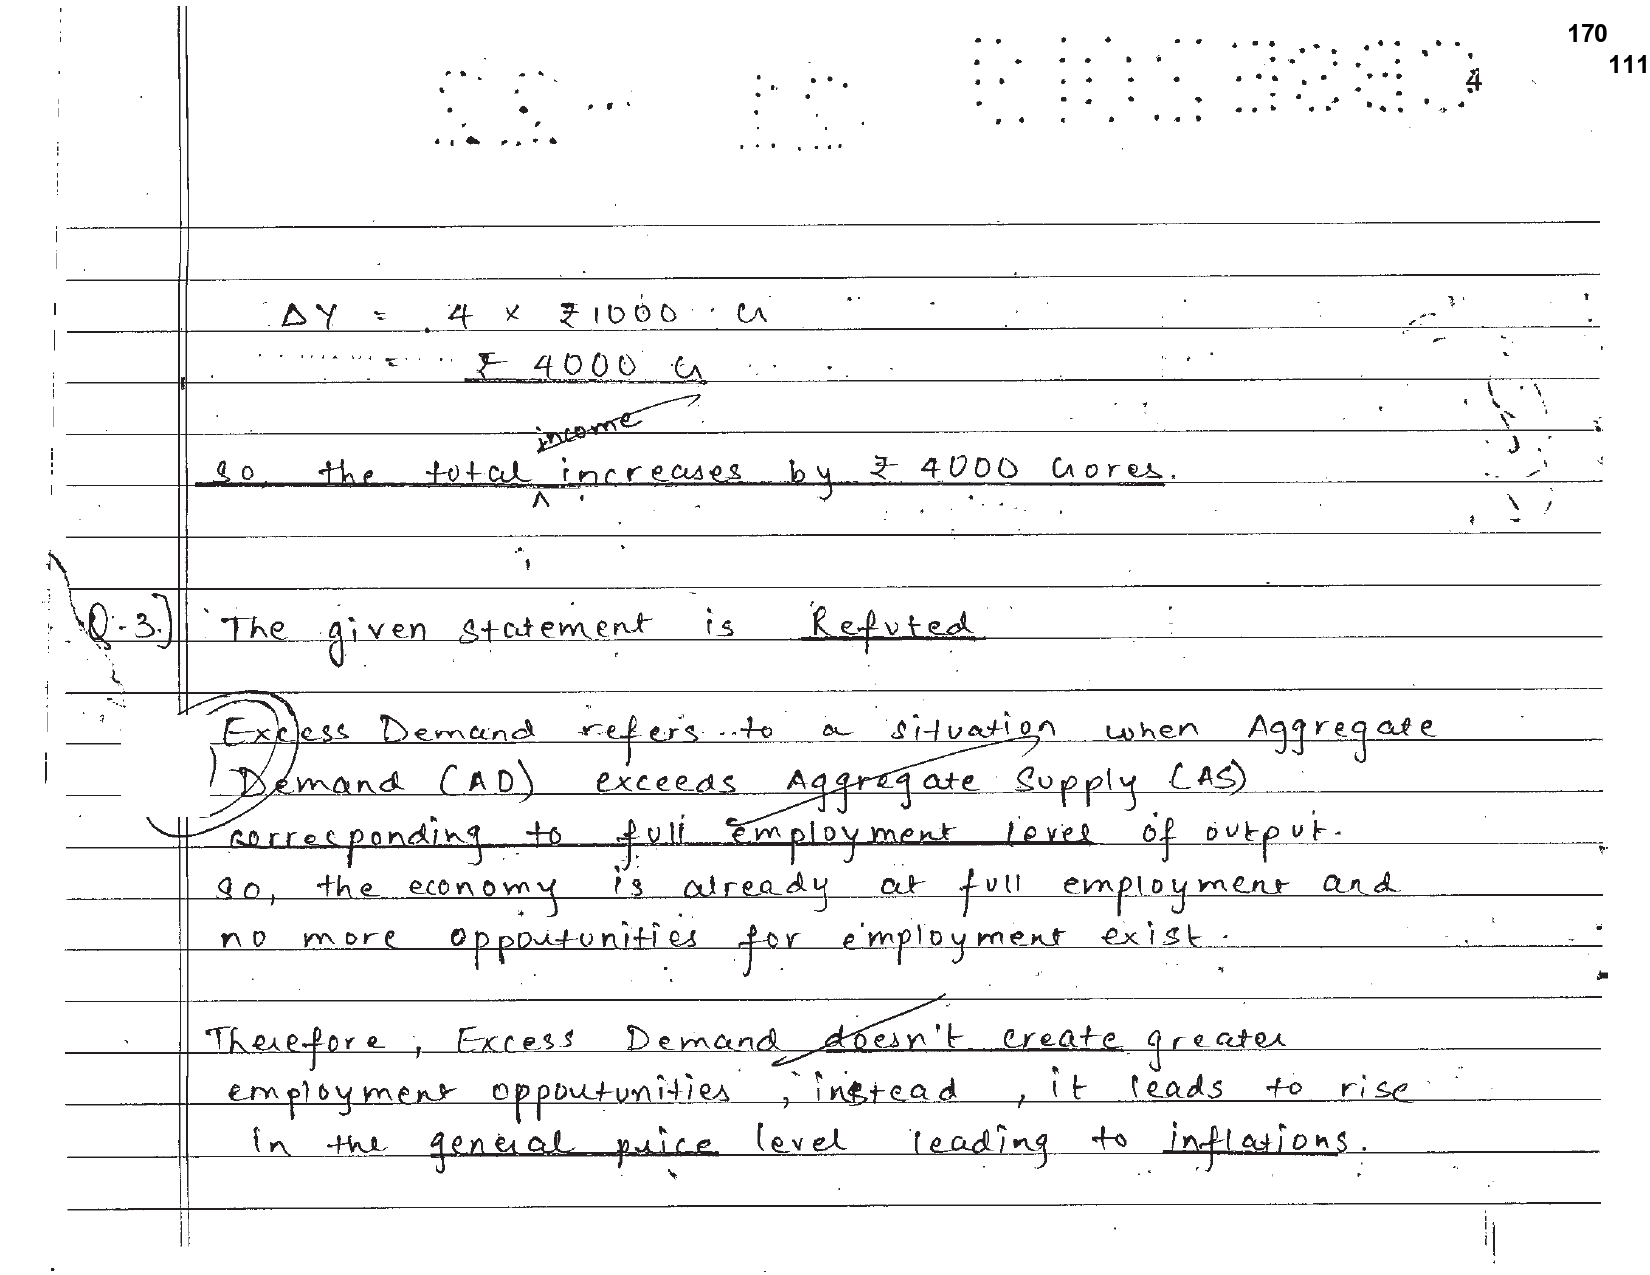 170
111
4
ΔY = 4 x ₹1000 Cr
= ₹ 4000 Cr
income
So, the total ^ increases by ₹ 4000 Crores.
Q-3.] The given statement is Refuted
Excess Demand refers to a situation when Aggregate
Demand (AD) exceeds Aggregate Supply (AS)
corresponding to full employment level of output.
So, the economy is already at full employment and
no more opportunities for employment exist.
Therefore, Excess Demand doesn't create greater
employment opportunities, instead, it leads to rise
in the general price level leading to inflations.